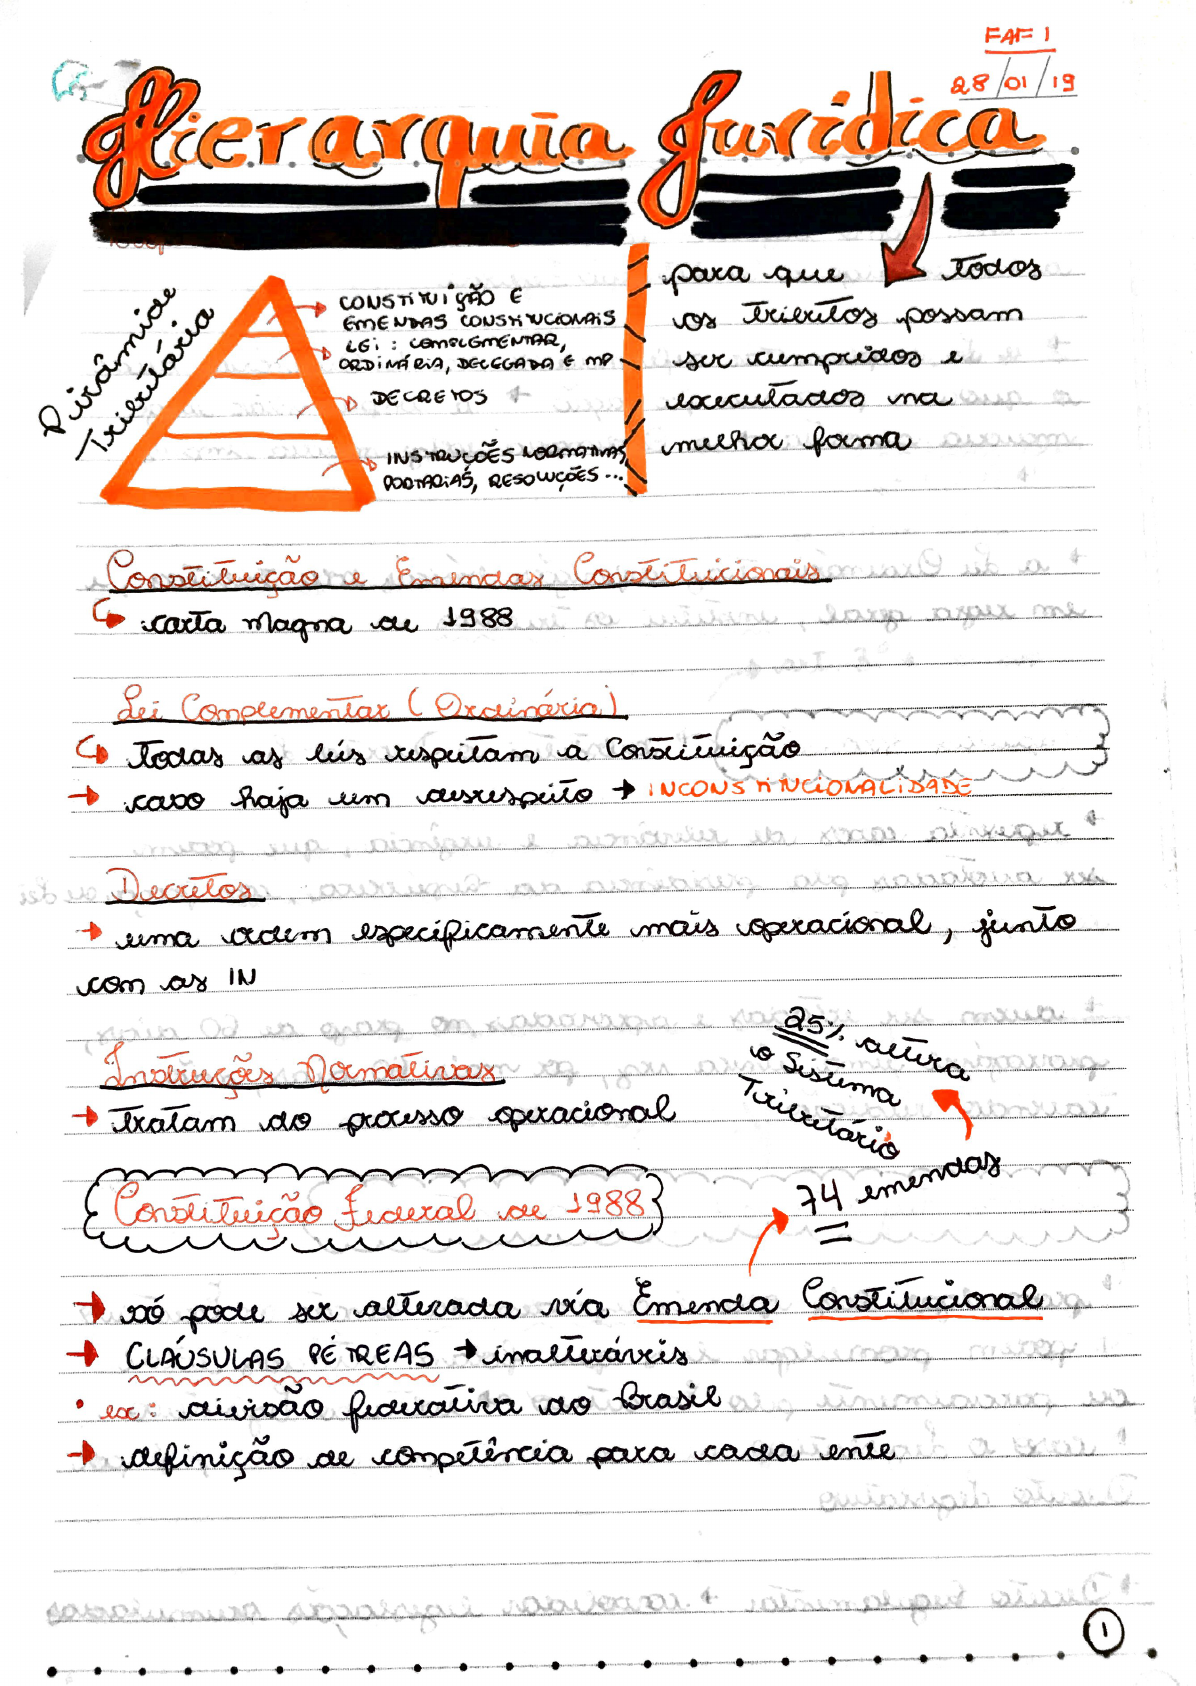 FAF 1
28/01/19
Hierarquia Jurídica
Pirâmide
Tributária
CONSTITUIÇÃO E
EMENDAS CONSTITUCIONAIS
LEI: COMPLEMENTAR,
ORDINÁRIA, DELEGADA E MP
DECRETOS
INSTRUÇÕES NORMATIVAS,
PORTARIAS, RESOLUÇÕES...
para que todos
os tributos possam
ser cumpridos e
executados na
melhor forma
Constituição e Emendas Constitucionais
carta magna de 1988
Lei Complementar (Ordinária)
Todas as leis respeitam a Constituição
caso haja um desrespeito → INCONSTITUCIONALIDADE
Decretos
→ uma ordem especificamente mais operacional, junto
com as IN
Instruções Normativas
→ Tratam do processo operacional
25% altera
o Sistema
Tributário
74 emendas
Constituição Federal de 1988
→ só pode ser alterada via Emenda Constitucional
→ CLÁUSULAS PÉTREAS → inalteráveis
• ex: divisão federativa do Brasil
→ definição de competência para cada ente
1